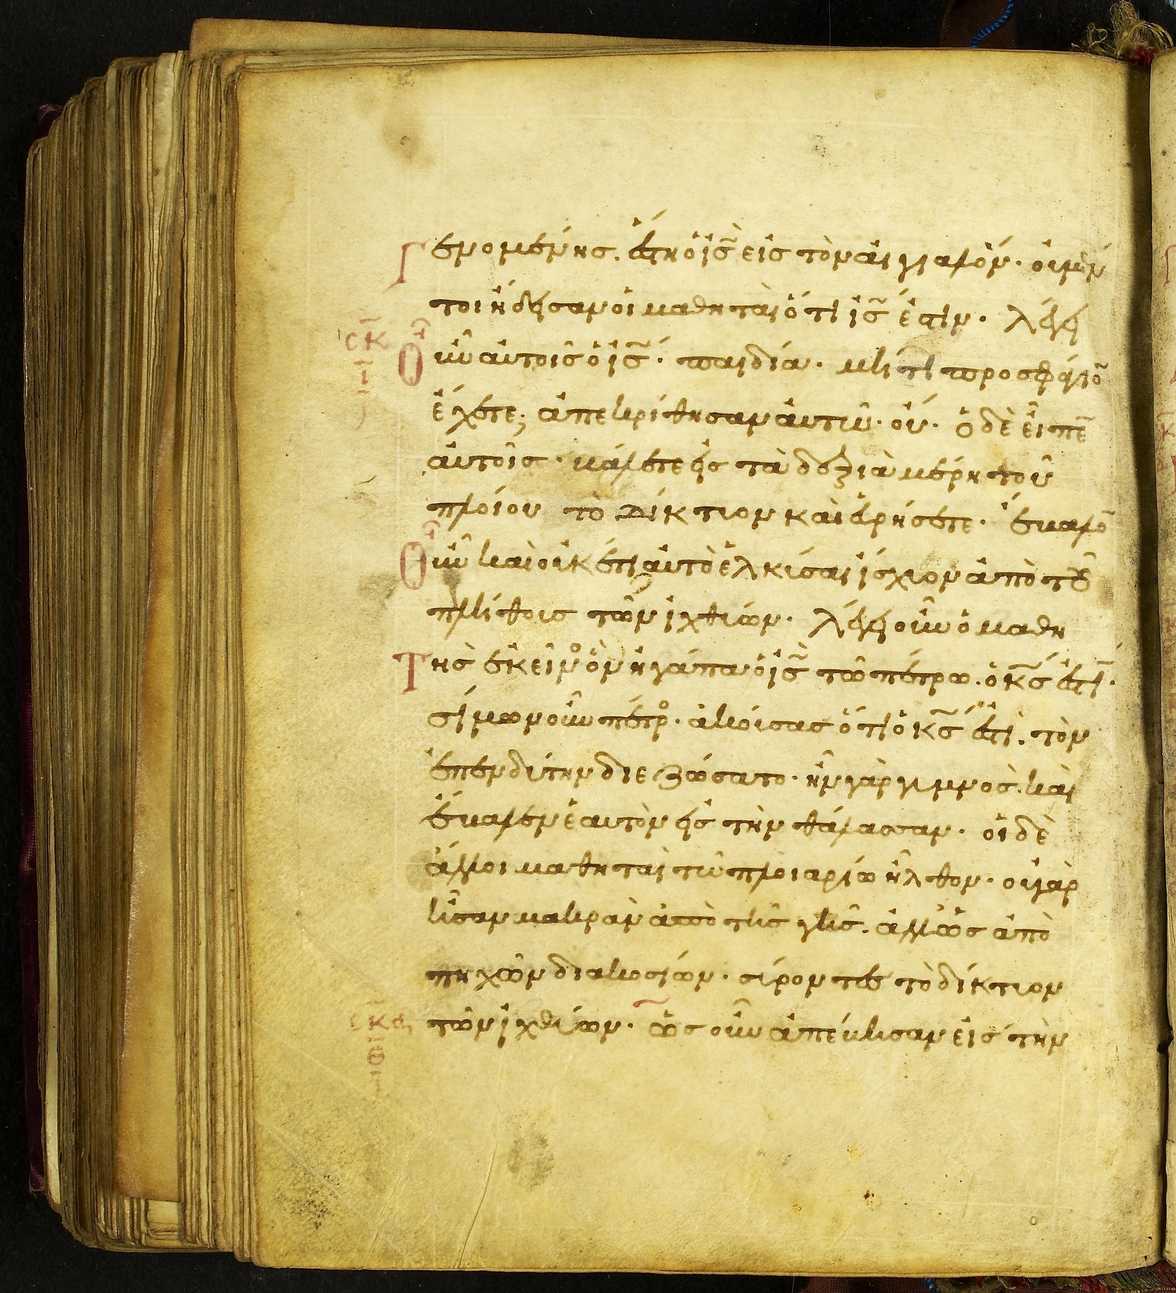 Γενομένης. ἔστη ὁ ἰς̅ εἰς τὸν αἰγιαλόν· οὐ μέν
τοι ἤδησαν οἱ μαθηταὶ ὅτι ἰς̅ ἐστιν· λέγει
Οὖν αὐτοῖς ὁ ἰς̅· παιδία· μή τι προσφάγιο̅
ἔχετε; ἀπεκρίθησαν αὐτῶ· οὔ· ὁ δὲ εἶπε̅
αὐτοῖς· βάλετε εἰς τὰ δεξιὰ μέρη τοῦ
πλοίου τὸ δίκτιον καὶ εὑρήσετε· ἔβαλο̅
Οὖν καὶ οὐκ έτι αὐτὸ ἑλκίσαι ἴσχιον ἀπὸ τοῦ
πλήθοις τῶν ἰχθίων· λέγει οὖν ὁ μαθη
Τὴς ἐκεῖνος ὃν ἠγάπα ὁ ἰς̅ τῶ πέτρω. ὁ κς̅ ἐστι̅·
σίμων οὖν πέτρος· ἀκοίσας ὅτι ὁ κς̅ ἐστι. τὸν
ἐπενδίτην διεζώσατο· ἦν γὰρ γιμνος. καὶ
ἔβαλεν ἑαυτὸν εἰς τὴν θάλασσαν· οἱ δὲ
ἄλλοι μαθηταὶ τῶ πλοιαρίω ἦλθον· οὐ γὰρ
ἦσαν μακρὰν ἀπὸ τῆς γῆς. ἀλλ' ὡς ἀπὸ
πηχῶν διακοσίων· σίροντες τὸ δίκτιον
τῶν ἰχθίων· ὡς οὖν ἀπέβησαν εἰς τὴν